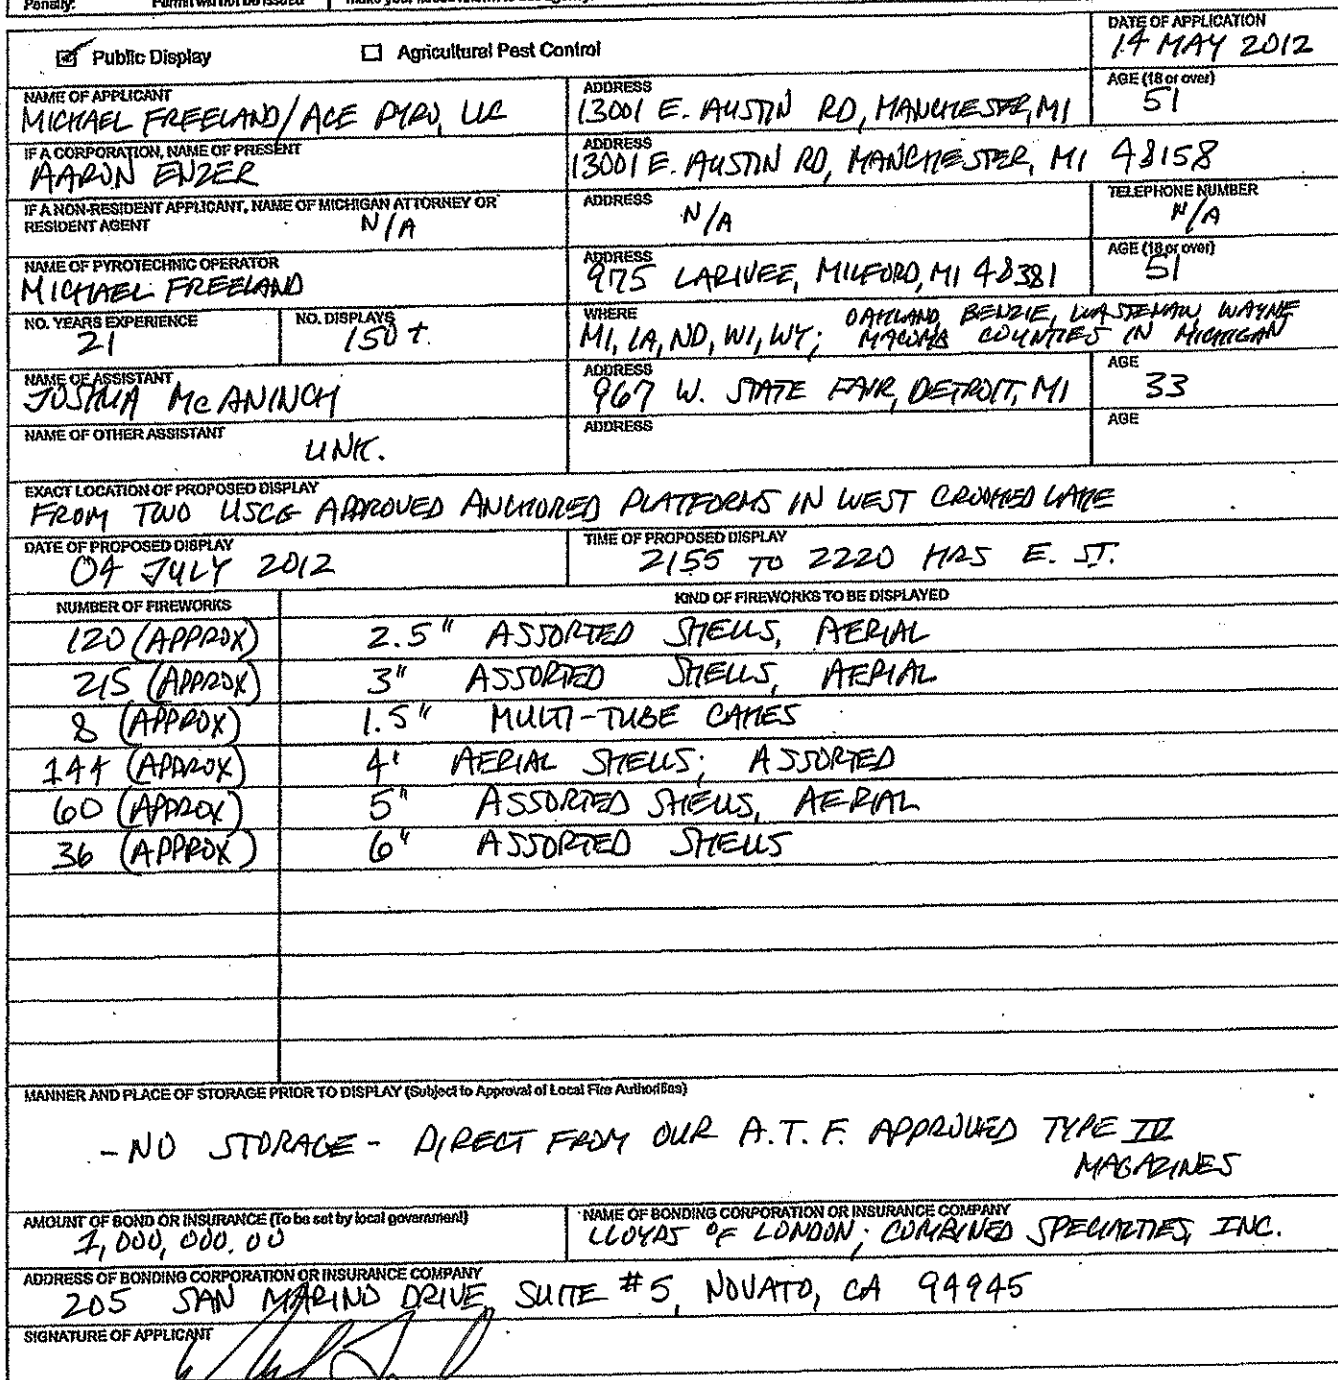 Penalty: Permit will not be issued
☑ Public Display ☐ Agricultural Pest Control
DATE OF APPLICATION
14 MAY 2012
NAME OF APPLICANT
MICHAEL FREELAND/ACE PYRO, LLC
ADDRESS
13001 E. AUSTIN RD, MANCHESTER, MI
AGE (18 or over)
51
IF A CORPORATION, NAME OF PRESENT
AARON ENZER
ADDRESS
13001 E. AUSTIN RD, MANCHESTER, MI 48158
IF A NON-RESIDENT APPLICANT, NAME OF MICHIGAN ATTORNEY OR
RESIDENT AGENT N/A
ADDRESS
N/A
TELEPHONE NUMBER
N/A
NAME OF PYROTECHNIC OPERATOR
MICHAEL FREELAND
ADDRESS
975 LARIVEE, MILFORD, MI 48381
AGE (18 or over)
51
NO. YEARS EXPERIENCE
21
NO. DISPLAYS
150 +
WHERE
MI, IA, ND, WI, WY; OAKLAND, BENZIE, WASTENAW WAYNE
MACOMB COUNTIES IN MICHIGAN
NAME OF ASSISTANT
JOSHUA McANINCH
ADDRESS
967 W. STATE FAIR, DETROIT, MI
AGE
33
NAME OF OTHER ASSISTANT
UNK.
ADDRESS
AGE
EXACT LOCATION OF PROPOSED DISPLAY
FROM TWO USCG APPROVED ANCHORED PLATFORMS IN WEST CROOKED LAKE
DATE OF PROPOSED DISPLAY
04 JULY 2012
TIME OF PROPOSED DISPLAY
2155 TO 2220 HRS E. ST.
NUMBER OF FIREWORKS KIND OF FIREWORKS TO BE DISPLAYED
120 (APPROX) 2.5" ASSORTED SHELLS, AERIAL
215 (APPROX) 3" ASSORTED SHELLS, AERIAL
8 (APPROX) 1.5" MULTI-TUBE CAKES
144 (APPROX) 4" AERIAL SHELLS; ASSORTED
60 (APPROX) 5" ASSORTED SHELLS, AERIAL
36 (APPROX) 6" ASSORTED SHELLS
MANNER AND PLACE OF STORAGE PRIOR TO DISPLAY (Subject to Approval of Local Fire Authorities)
- NO STORAGE - DIRECT FROM OUR A.T.F. APPROVED TYPE IV
MAGAZINES
AMOUNT OF BOND OR INSURANCE (To be set by local government)
1,000,000.00
NAME OF BONDING CORPORATION OR INSURANCE COMPANY
LLOYDS OF LONDON; COMBINED SPECIALTIES, INC.
ADDRESS OF BONDING CORPORATION OR INSURANCE COMPANY
205 SAN MARINO DRIVE, SUITE #5, NOVATO, CA 94945
SIGNATURE OF APPLICANT